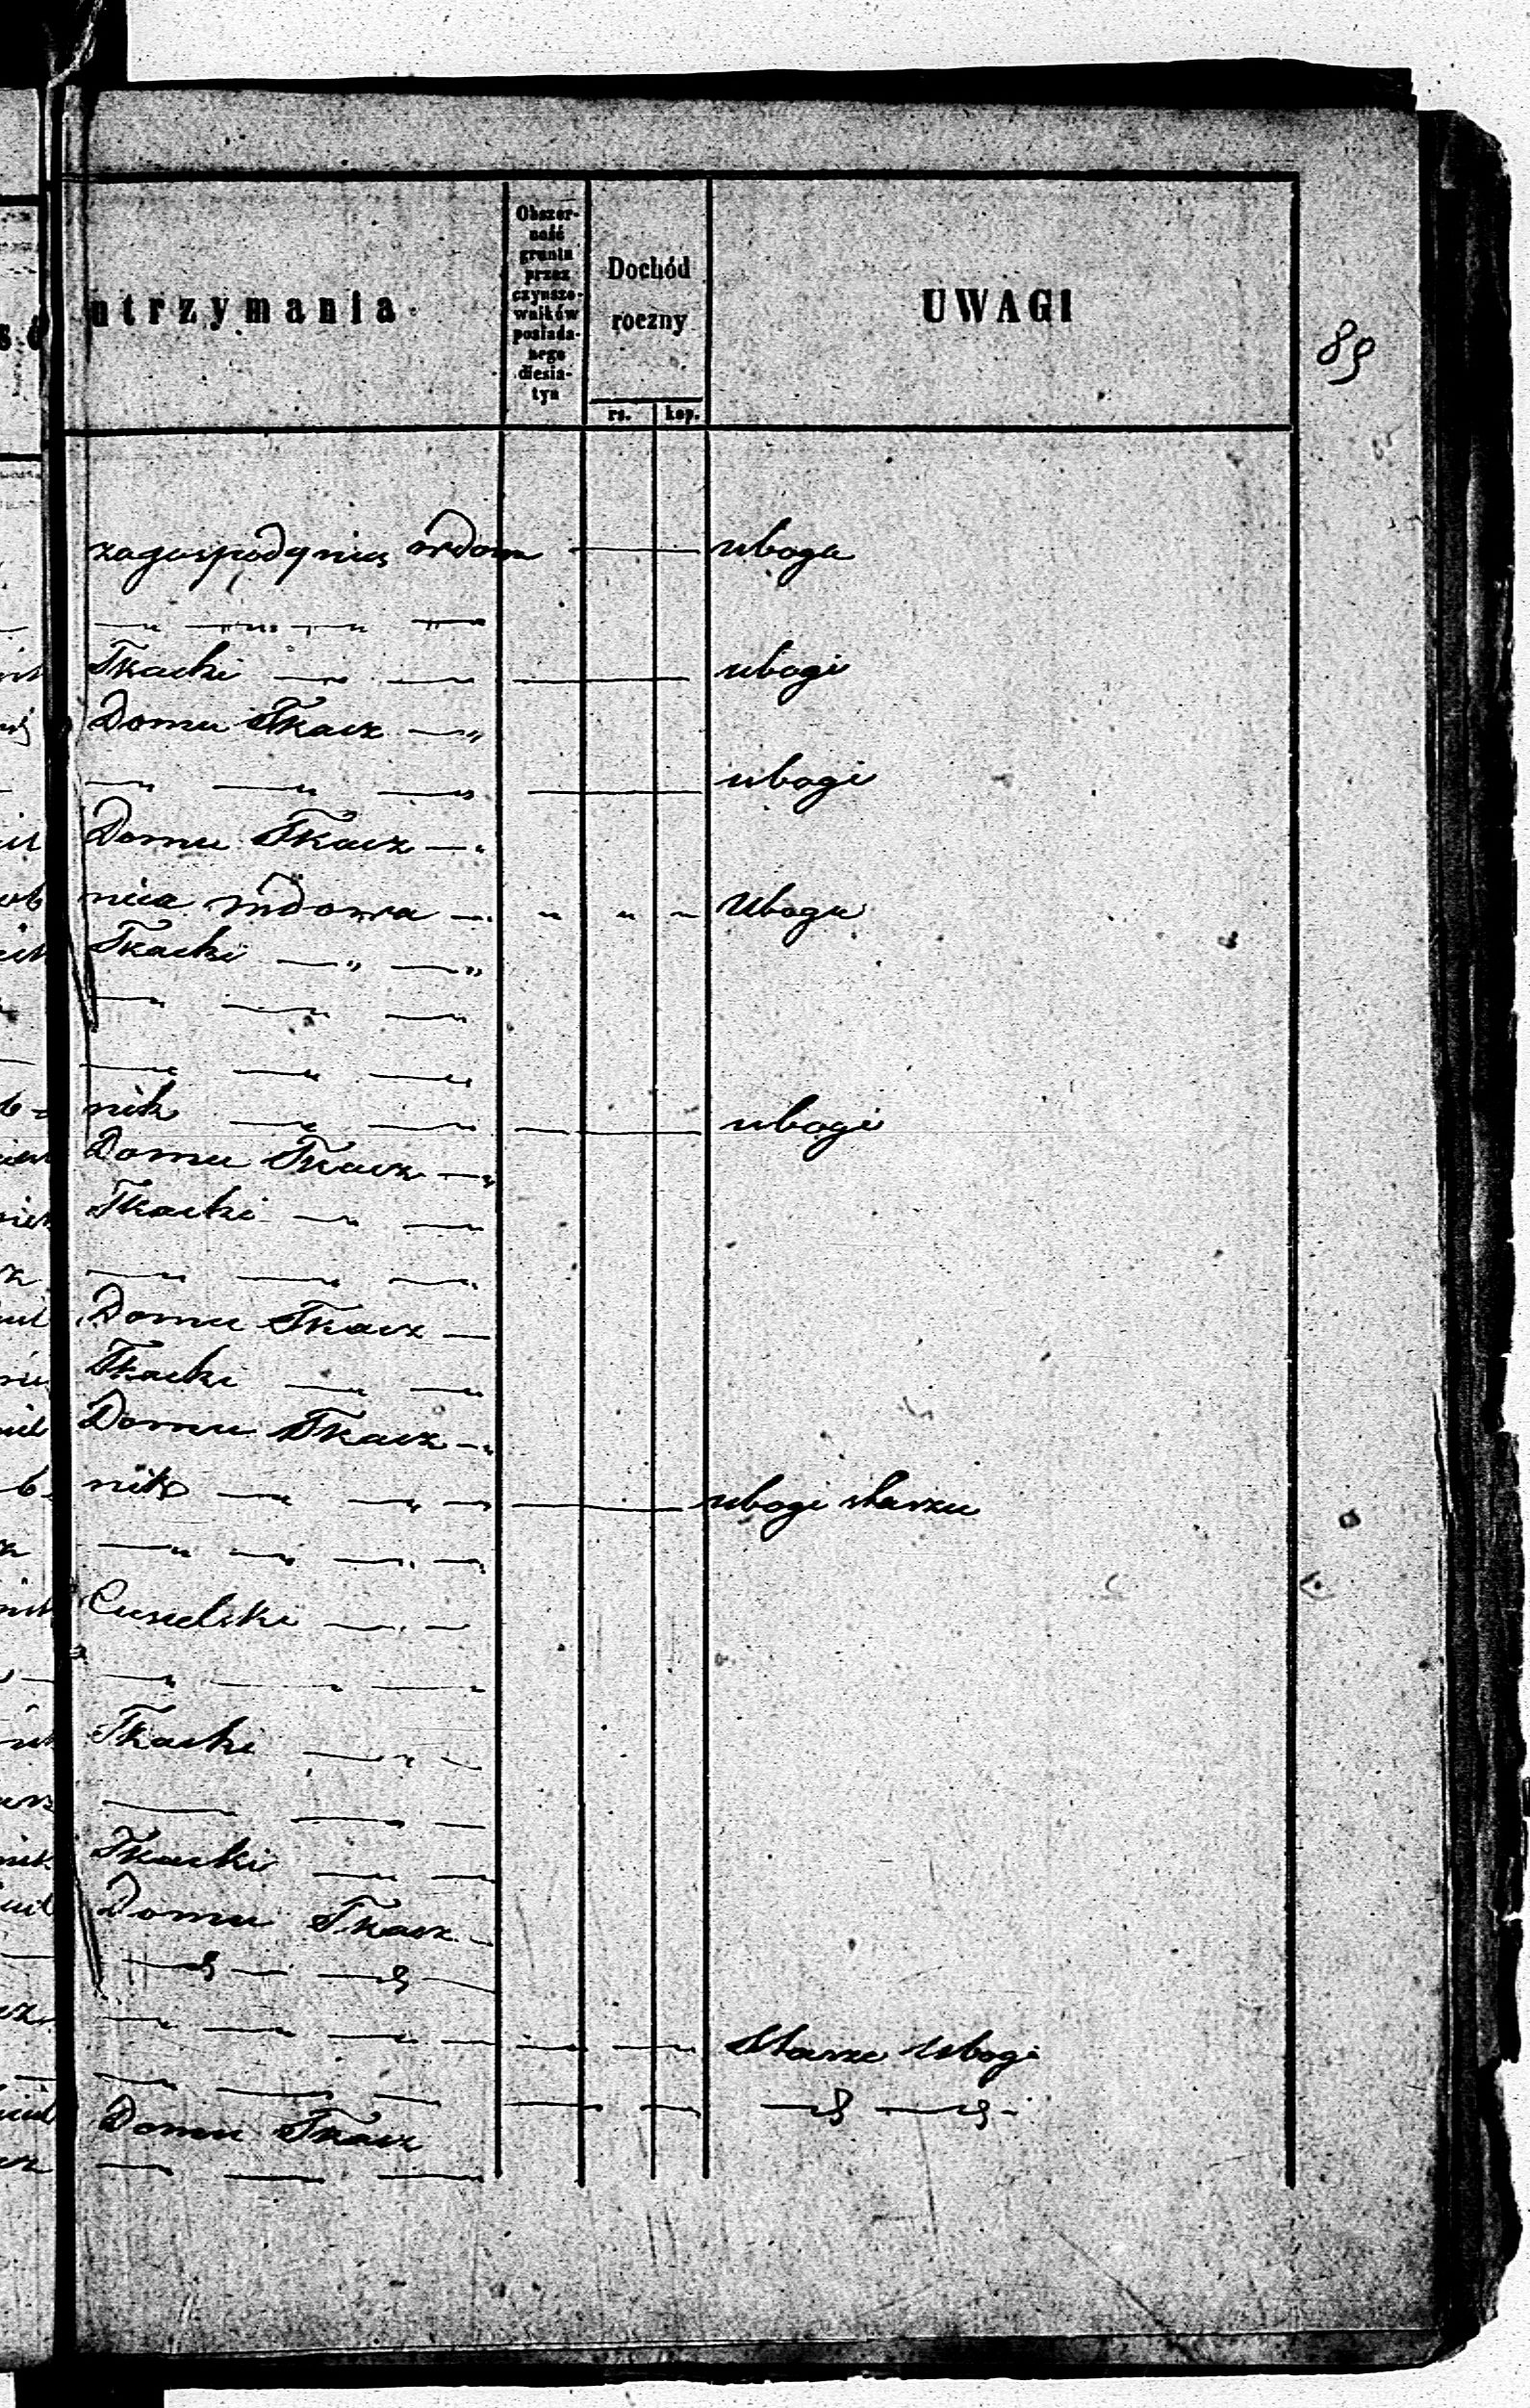 utrzymania
Obszerność gruntu przez czynszowników posiadanego diesiatyn
Dochód roczny
rs. kop.
UWAGI
89
zagospodynią wdowa — uboga
— „ — „ — „ —
Tkacki — „ — „ — ubogi
Domu Tkacz — „
— „ — „ — „ — ubogi
Domu Tkacz — „
nica wdowa — „ „ „ Uboga
Tkacki — „ — „
— „ — „ — „
— „ — „ — „
nik — „ — „ — ubogi
Domu Tkacz — „
Tkacki — „ — „
— „ — „ — „
Domu Tkacz —
Tkacki — „ — „
Domu Tkacz — „
nik — „ — „ — „ — ubogi
— „ — „ — „ — „
Ciesielski — „ —
— „ — „ — „
Tkacki — „ —
— — —
Tkacki — „ —
Domu Tkacz —
— „ — „ —
— „ — „ — „ — Ubogi
— „ — „ — — „ — „
Domu Tkacz
— „ — „ — „